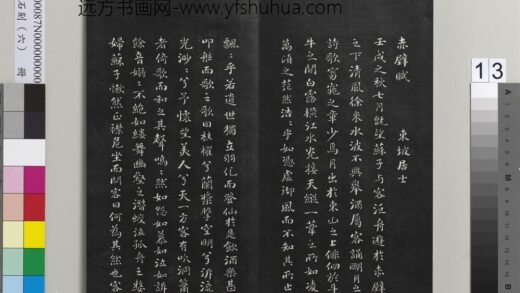 远方书画网-www.yfshuhua.com
赤壁賦
東坡居士
壬戌之秋七月既望蘇子与客泛舟遊於赤壁
之下清風徐來水波不興舉酒屬客誦明月之
詩歌窈窕之章少焉月出於東山之上徘徊於斗
牛之間白露橫江水光接天縱一葦之所如凌
萬頃之茫然浩〻乎如憑虛御風而不知其所止
飄〻乎若遺世獨立羽化而登仙於是飲酒樂甚
叩舷而歌之歌曰桂櫂兮蘭槳擊空明兮泝流
光渺〻兮予懷望美人兮天一方客有吹洞簫
者倚歌而和之其聲嗚〻然如怨如慕如泣如訴
餘音嫋〻不絕如縷舞幽壑之潛蛟泣孤舟之嫠
婦蘇子愀然正襟危坐而問客曰何為其然也客
13
石刻（六） 册